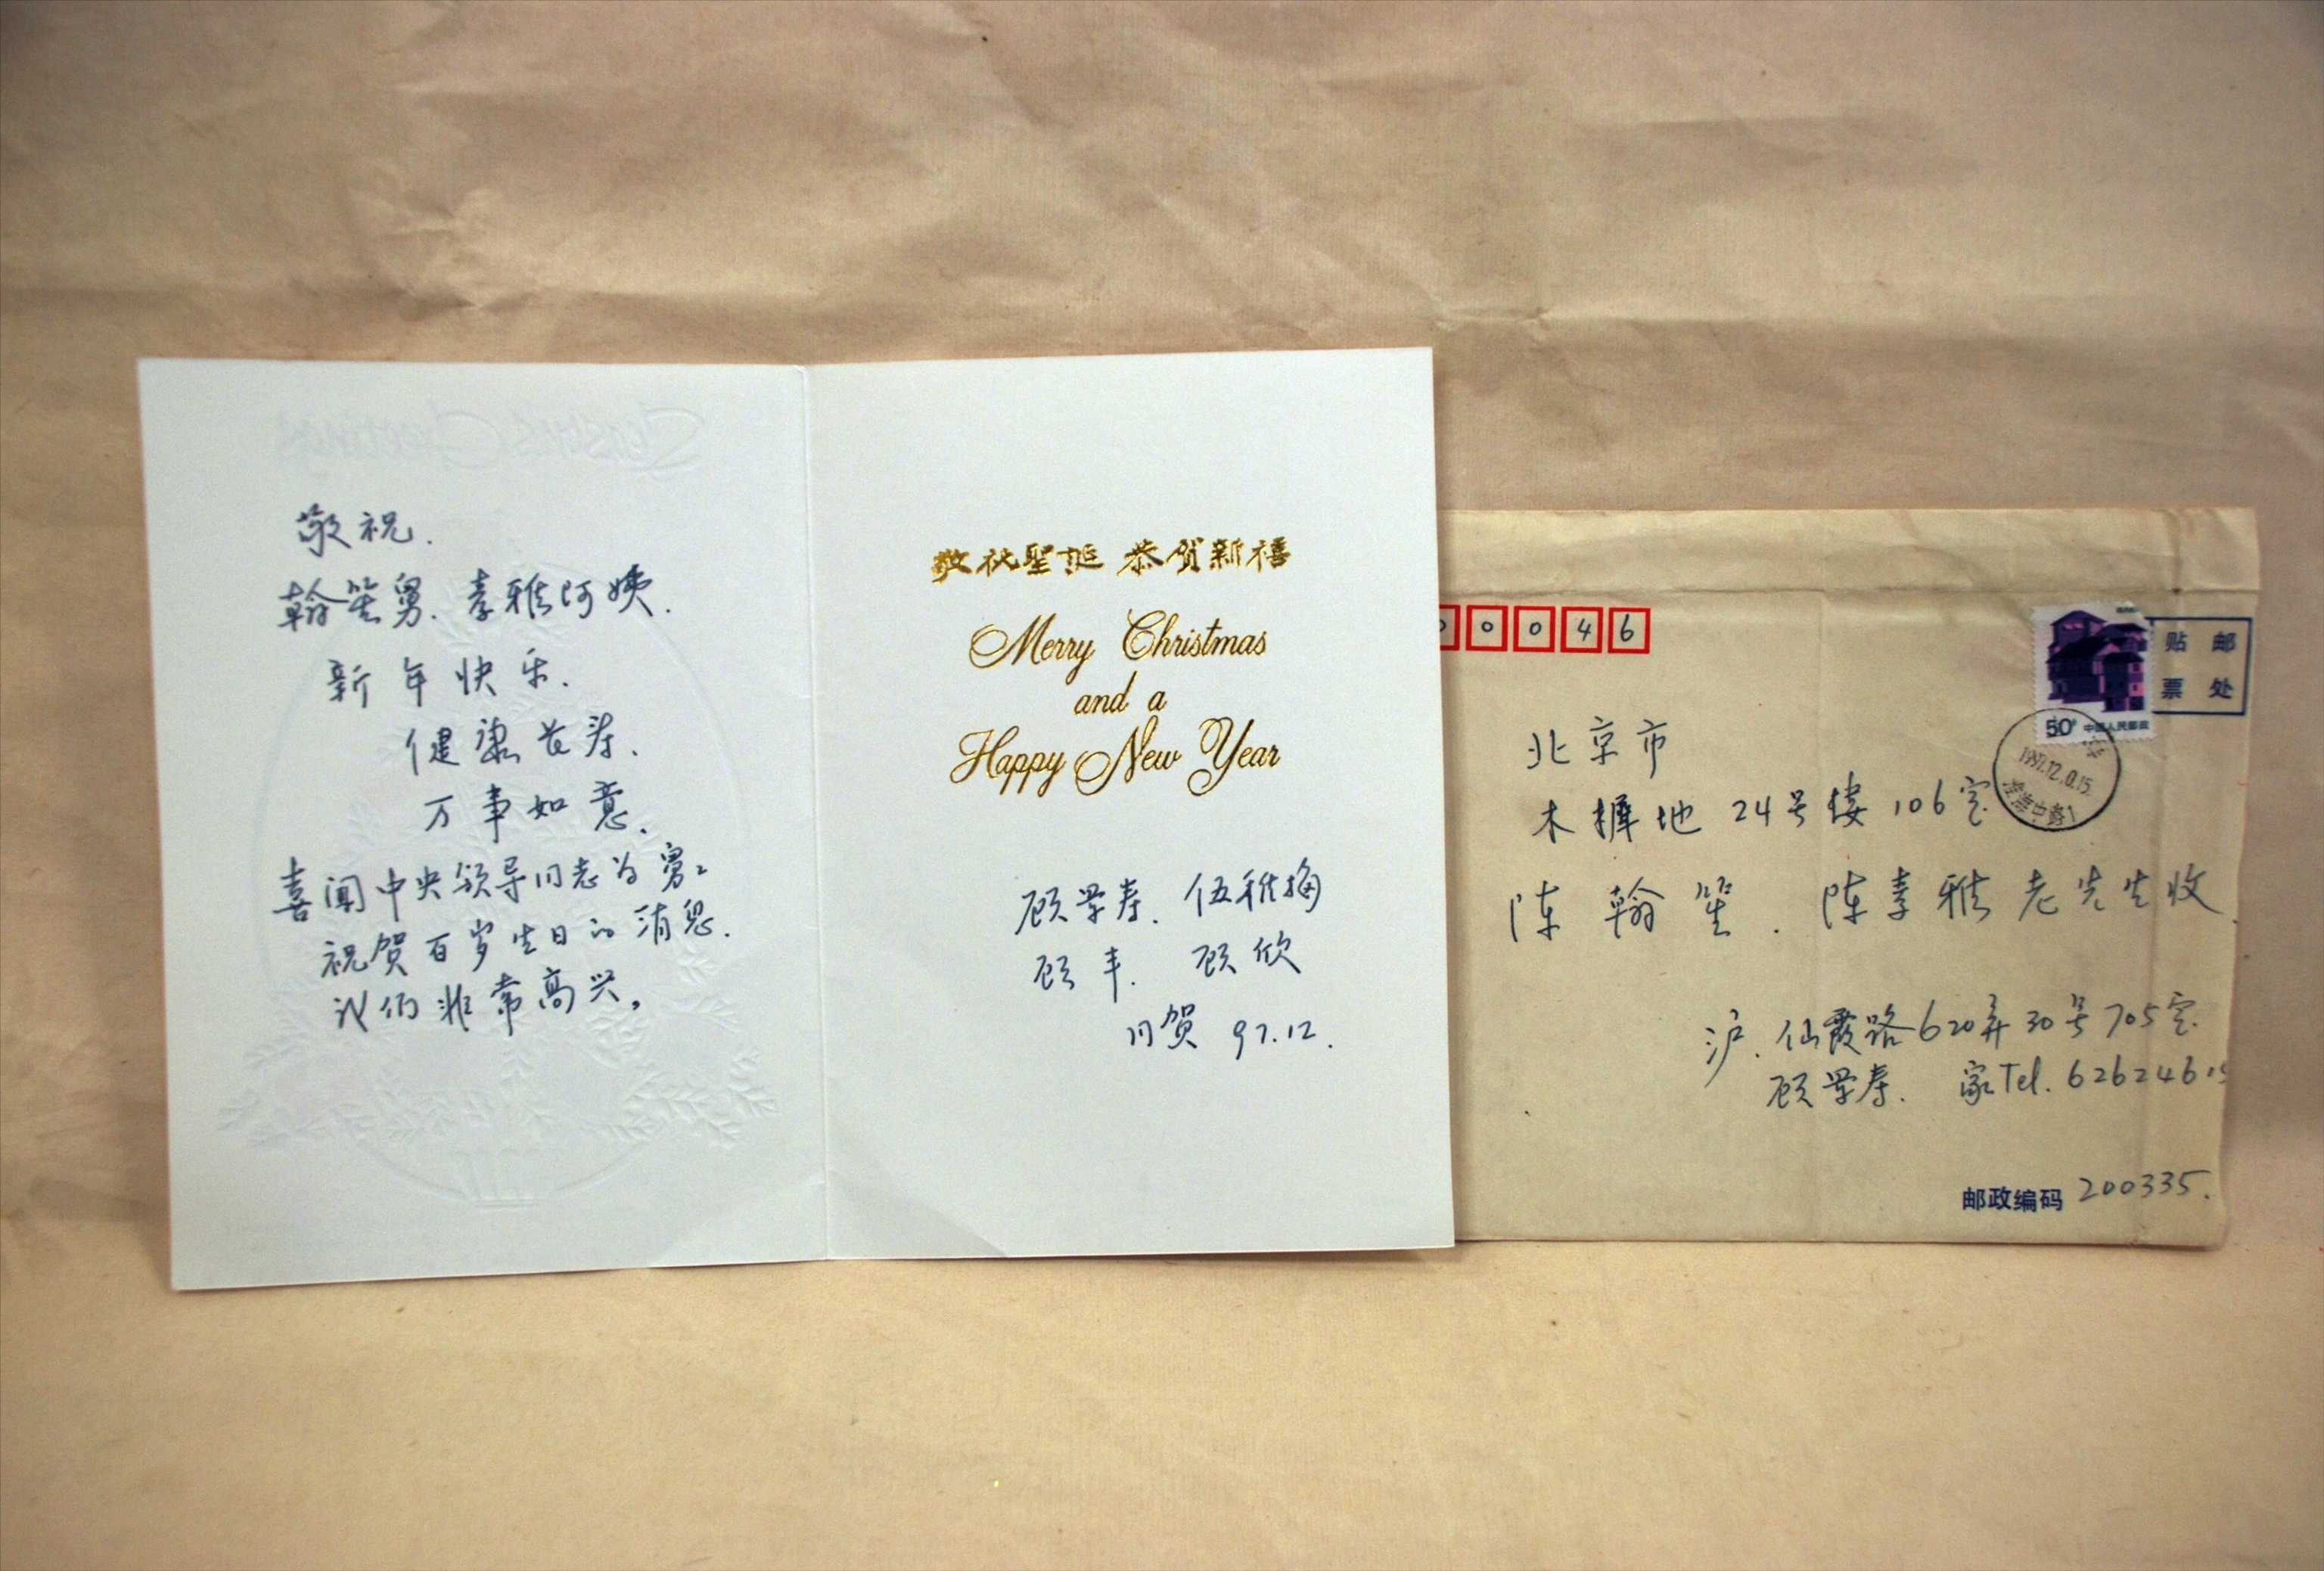 敬祝.
翰笙舅.孝雅阿姨.
新年快乐.
健康长寿.
万事如意.
喜闻中央领导同志为舅舅
祝贺百岁生日的消息.
我们非常高兴。
敬祝聖誕 恭贺新禧
Merry Christmas
and a
Happy New Year
顾学寿. 伍雅梅
顾丰. 顾欣
同贺 97.12.
0 0 4 6
贴 邮
票 处
50分 中国人民邮政
1997.12.
北京市
木樨地 24号楼 106室
陈翰笙.陈孝雅老先生收.
沪.仙霞路620弄30号705室.
顾学寿. 家Tel.626246
邮政编码 200335.